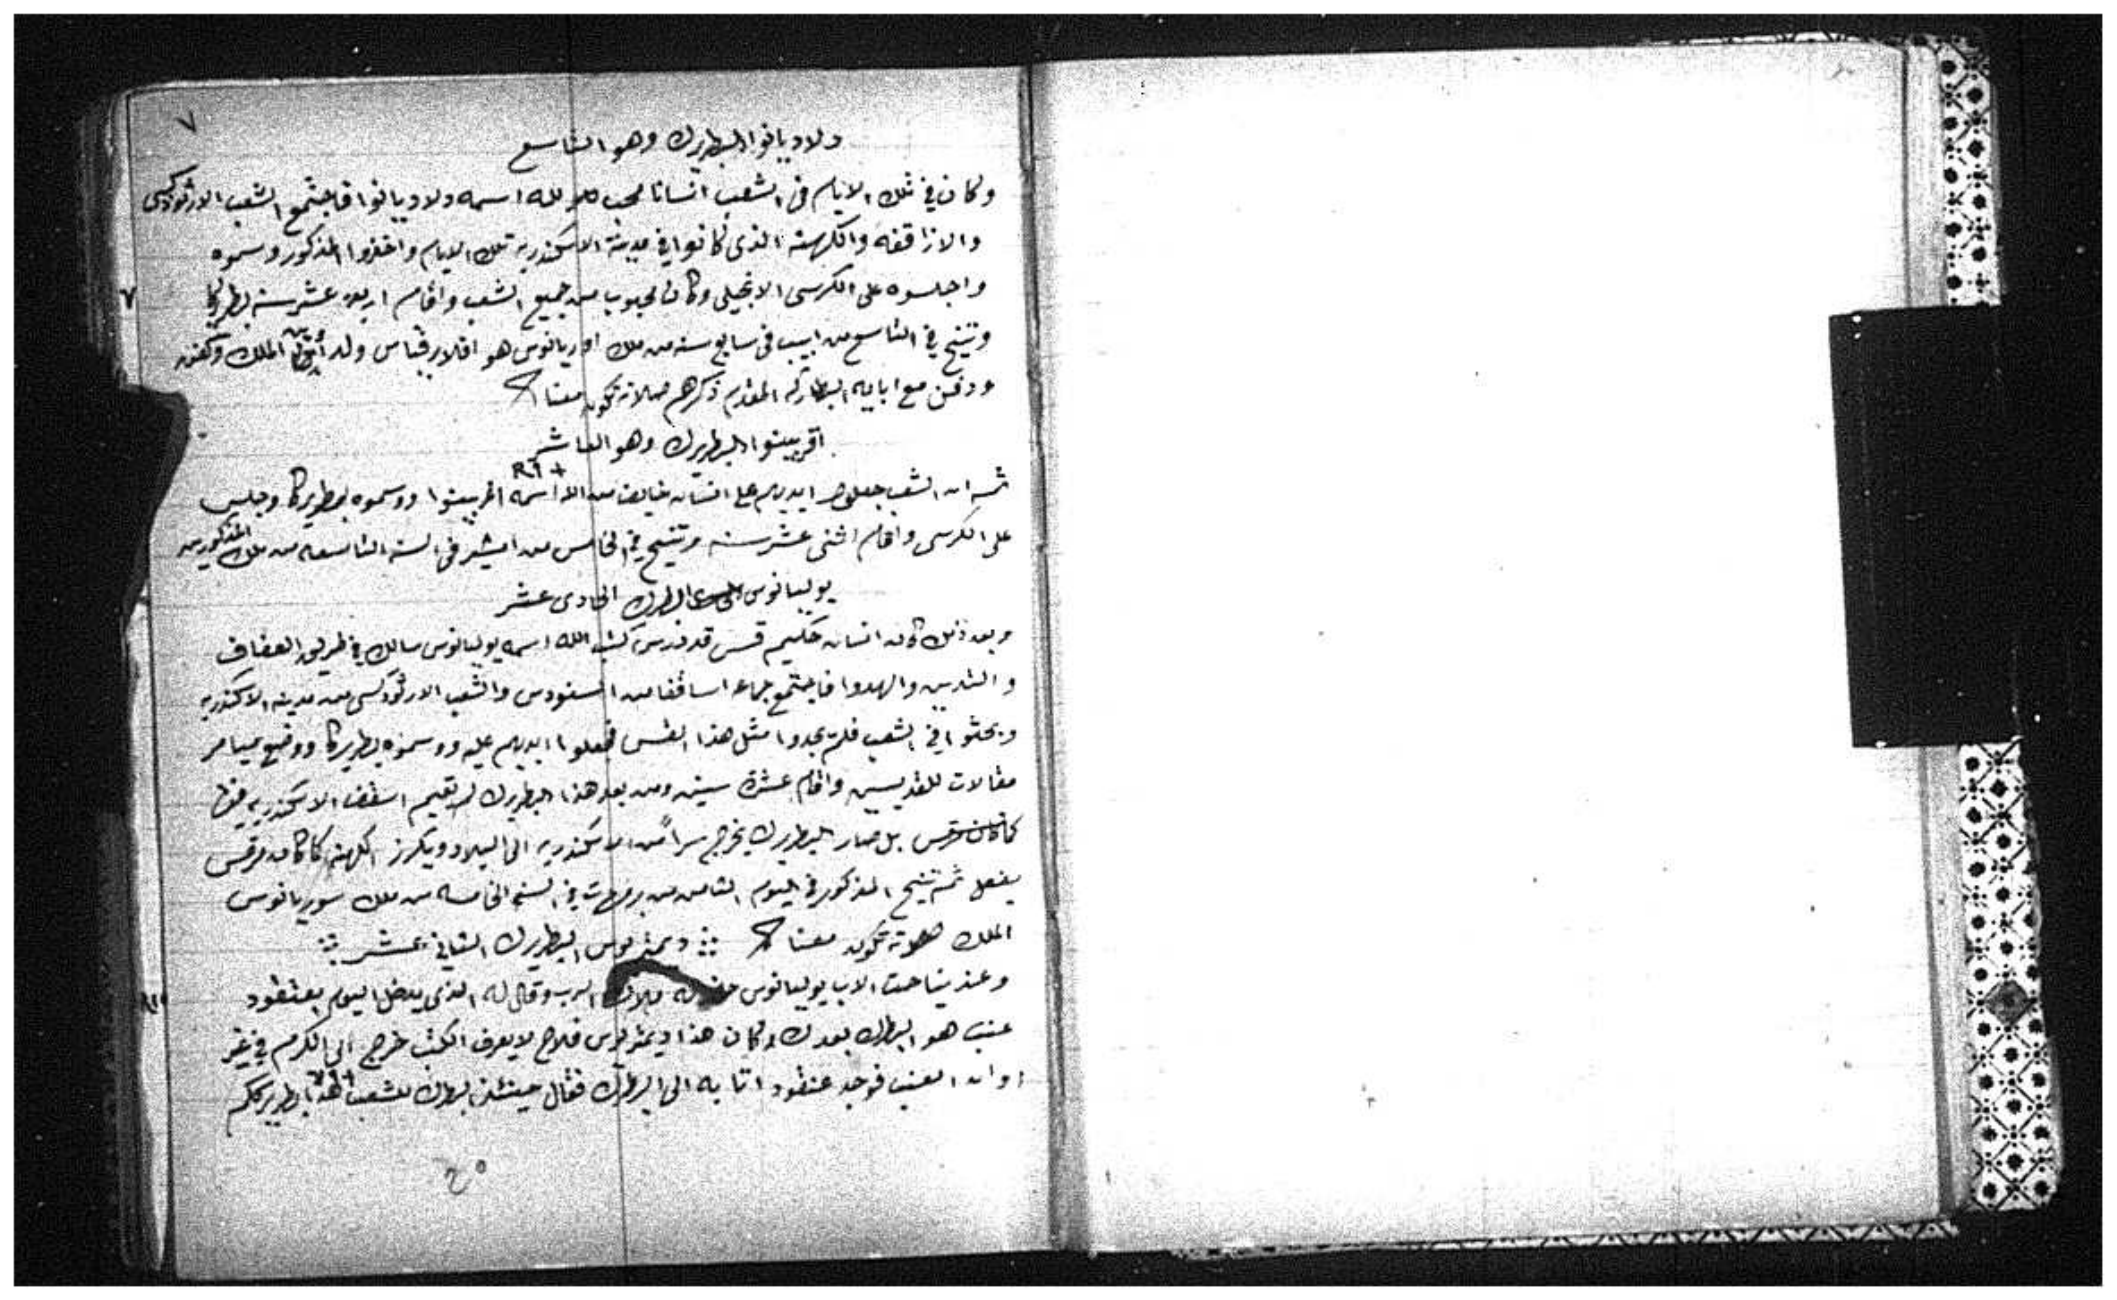 ٧
ولاديانوا البطريرك وهو التاسع
وكان في تلك الايام فى الشعب انسانا محب لله اسمه ولاديانوا فاجتمع الشعب الارثودكسى
والازاقفه والكهنه الذى كانوا في مدينة الاسكندريه تلك الايام واخذوا المذكور وسموه
واجلسوه على الكرسى الانجيلى وكان محبوب من جميع الشعب واقام اربعة عشر سنه بطريركا
وتنيح في التاسع من ابيب فى سابع سنه من ملك اوريانوس هو افلارقياس ولد الملك وكفنه
ودفن مع ابايه البطاركه المقدم ذكرهم صلاته تكون معنا
اقربينوا البطريرك وهو العاشر
ثم ان الشعب جعلوا ايديهم على انسان خايف من الله اسمه اغربينوا ووسموه بطريركا وجلس
على الكرسى واقام اثنى عشر سنه وتنيح في الخامس من امشير فى السنه التاسعه من ملك المذكورين
يوليانوس البطرك الحادى عشر
وبعد ذلك كان انسان حكيم قس قد درس كتب الله اسمه يوليانوس سالك في طريق العفاف
والتدين والهدوا فاجتمع جماعه اساقفا من السنودس والشعب الارثودكسى من مدينه الاسكندريه
وبحثوا في الشعب فلم يجدوا مثل هذا القس فجعلوا ايديهم عليه ووسموه بطريركا ووضع ميامر
مقالات للقديسين واقام عشرة سنين ومن بعد هذا البطريرك لم تقيم اسقف الاسكندريه فيها
بل صار البطريرك يخرج سراً من الاسكندريه الى البلاد ويكرز الكهنه كما كان مرقس
يفعل ثم تنيح المذكور في اليوم الثامن من برمهات في السنه الخامسه من ملك سوريانوس
الملك صلاته تكون معنا ديمتريوس البطريرك الثاني عشر
وعند نياحت الاب يوليانوس ملاك الرب وقال له الذى يدخل اليوم بعنقود
عنب هو البطرك بعدك وكان هذا ديمتريوس فلاح لا يعرف الكتب خرج الى الكرم في غير
اوان العنب فوجد عنقود اتا به الى البطرك فقال حينئذ البطرك للشعب هذا بطريرككم